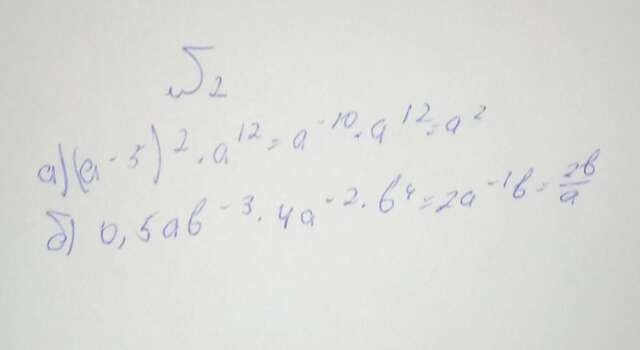 №2
а) (a⁻⁵)² · a¹² = a⁻¹⁰ · a¹² = a²
б) 0,5ab⁻³ · 4a⁻² · b⁴ = 2a⁻¹b = 2b/a